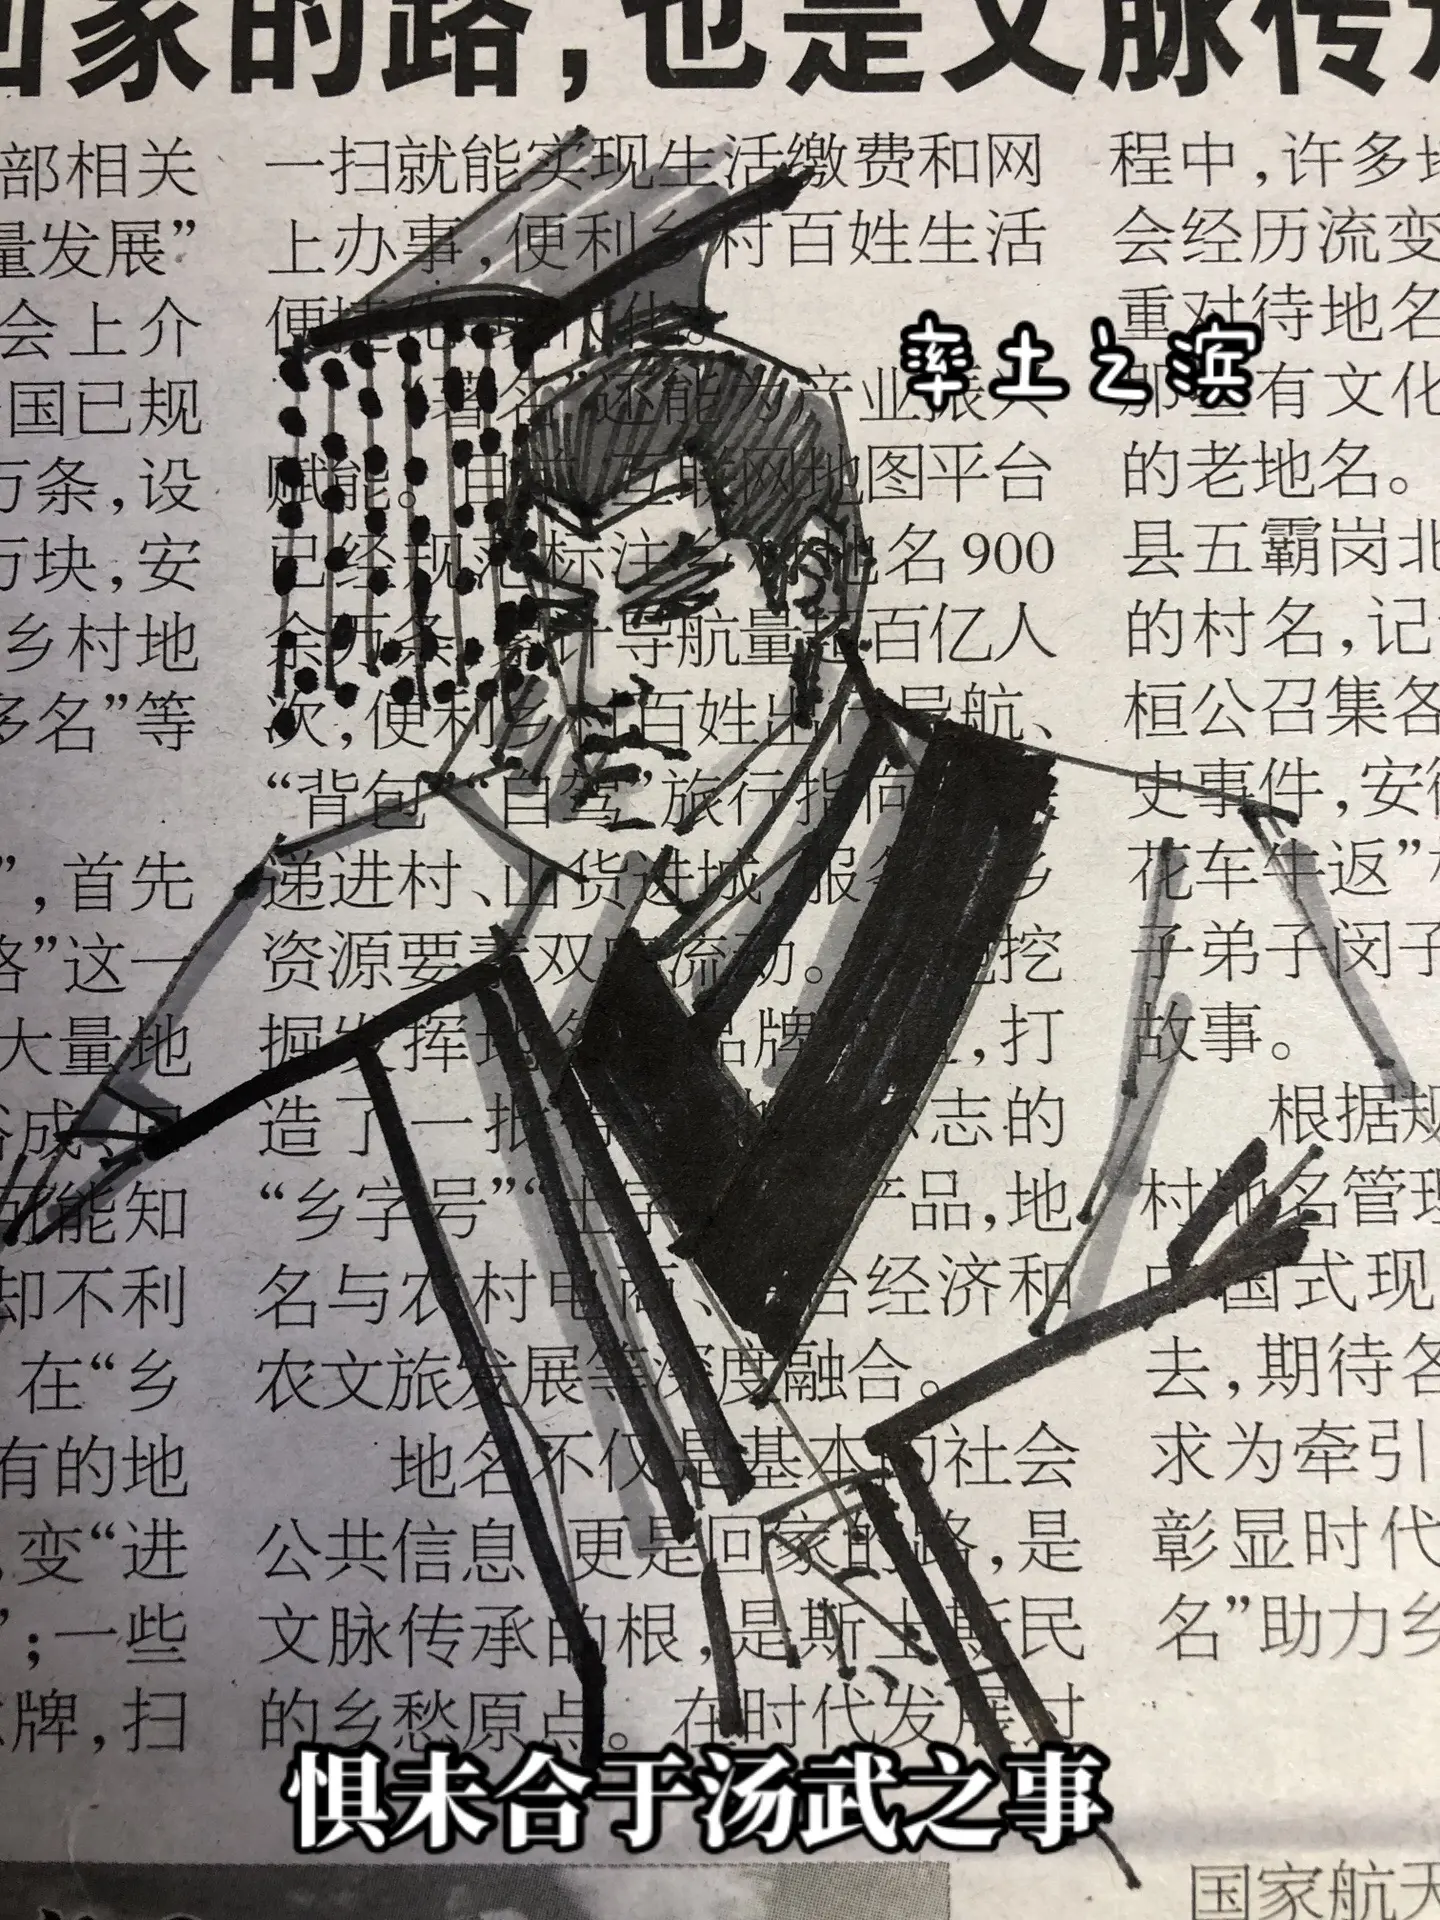 回家的路，也是文脉传承
部相关
量发展”
会上介
国已规
万条，设
万块，安
乡村地
多名”等
”，首先
路”这一
大量地
俗成、口
可能知
却不利
在“乡
有的地
变“进
”；一些
牌，扫
一扫就能实现生活缴费和网
上办事，便利乡村百姓生活
便捷化、现代化。
“著名”还能为产业振兴
赋能。目前，互联网地图平台
已经规范标注乡村地名900
余万条，累计导航量超百亿人
次，便利乡村百姓出行导航、
“背包”“自驾”旅行指向
递进村、山货进城，服务
资源要素双向流动。
掘发挥地名品牌，打
造了一批有志的
“乡字号”“土字产品，地
名与农村电商、经济和
农文旅发展等深度融合。
地名不仅是基本的社会
公共信息，更是回家的路，是
文脉传承的根，是斯土斯民
的乡愁原点。在时代发展过
程中，许多地
会经历流变
重对待地名
那些有文化
的老地名。
县五霸岗北
的村名，记
桓公召集各
史事件，安徽
花车牛返”
子弟子闵子
故事。
根据规
村地名管理
中国式现
去，期待各
求为牵引
彰显时代
名”助力乡
率土之滨
惧未合于汤武之事
国家航天